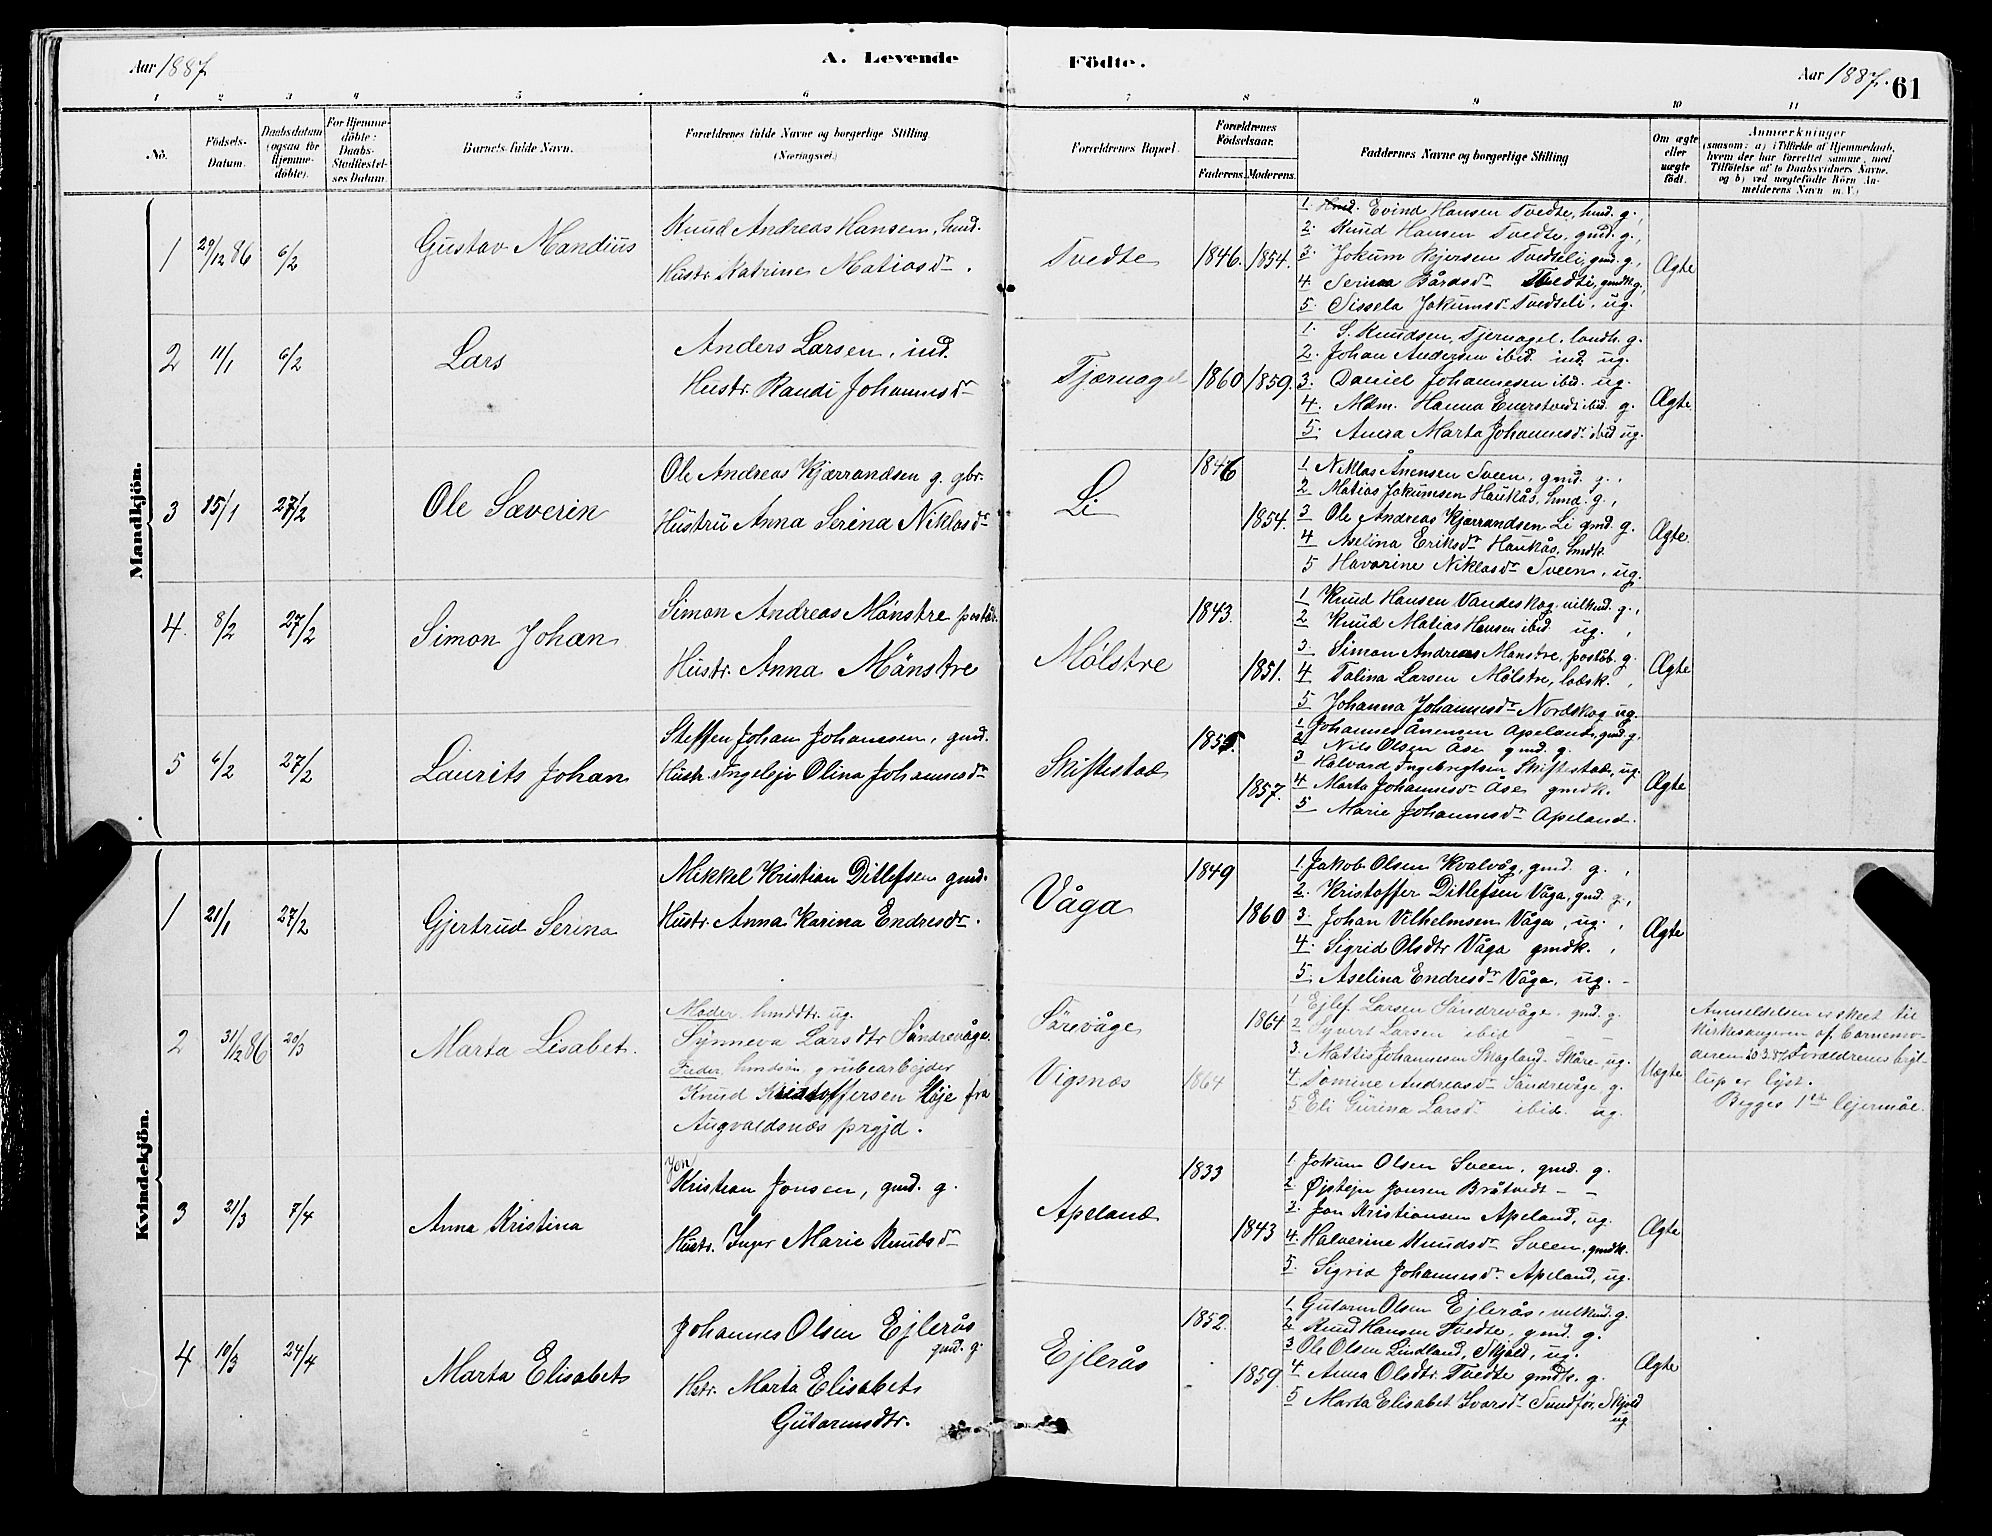 Aar 1887
A. Levende Födte.
Aar 1887. 61
1 2 3 4 5 6 7 8 9 10 11
No.
Födsels-
Datum.
Daabsdatum
(ogsaa for
Hjemme-
döbte).
For Hjemme-
döbte:
Daabs-
Stadfæstel-
ses Datum.
Barnets fulde Navn.
Forældrenes fulde Navne og borgerlige Stilling
(Næringsvei.)
Forældrenes Bopæl.
Forældrenes
Födselsaar.
Faderens. Moderens.
Faddernes Navne og borgerlige Stilling
Om ægte
eller
uægte
födt.
Anmærkninger
(saasom: a) i Tilfælde af Hjemmedaab,
hvem der har forrettet samme, med
Tilföielse af to Daabsvidners Navne,
og b) ved uægtefödte Börn An-
melderens Navn m. V.)
Mandkjön.
1 29/12 86 6/2 Gustav Mandius
Knud Andreas Hansen, hmd.
Hustr. Katrine Matiasdr.
Tvedte 1846. 1854.
1. Evind Hansen Tvedte, hmd. g.,
2. Knud Hansen Tvedte, gmd. g.,
3. Jokum Rejersen Tvedteli, gmd. g.,
4. Serina Bårdsdr Tvedte, gmdk. g.,
5. Sissela Jokumsdr Tvedteli, ug.
Ægte
2 11/1 6/2 Lars
Anders Larsen, ind.
Hustr. Randi Johannesdr
Tjærnagel 1860 1859.
1. S. Knudsen, Tjernagel, landh. g.
2. Johan Andersen ibid. ind. ug.
3. Daniel Johannesen ibid. ug.
4. Mdm. Hanna ibid. g.
5. Anna Marta Johannesdr ibid ug.
Ægte
3 15/1 27/2 Ole Sæverin
Ole Andreas Kjærrandsen g. gbr.
Hustru Anna Serina Niklasdr
Li 1846 1854.
1 Niklas Ånensen Sveen, gmd. g.,
2 Matias Jokumsen Haukås, hmd. g.,
3 Ole Andreas Kjærrandsen Li gmd. g.
4 Aselina Eriksdr Haukås, hmdk.
5 Havarine Niklasdr Sveen, ug.
Ægte
4. 8/2 27/2 Simon Johan
Simon Andreas Mönstre poståb.
Hustr. Anna Mönstre
Mølstre 1843. 1851.
1 Knud Hansen Vandeskog, vilkmd. g.,
2 Knud Matias Hansen ibid. ug.,
3 Simon Andreas Mönstre, poståb. g.
4 Talina Larsen Mølstre, lodsk.,
5 Johanna Johannesdr Nordskog ug.
Ægte
5 6/2 27/2 Laurits Johan
Steffen Johan Johanesen, gmd.
Hustr. Ingebejv Olina Johannesdr
Skiftestad 1855. 1857.
1 Johannes Ånensen Apeland, gmd. g,
2 Nils Olsen Åse gmd. g.
3 Halvard Ingebregtsen Skiftestad, ug.
4 Marta Johannesdr Åse gmdk.
5 Marie Johannesdr Apeland.
Ægte
Kvindekjön.
1 21/1 27/2 Gjertrud Serina
Mikkel Kristian Ditlefsen gmd.
Hustr. Anna Karina Endresdr.
Våga 1849 1860
1. Jakob Olsen Kvalvåg, gmd. g.,
2. Kristoffer Ditlefsen Våga, gmd. g.,
3. Johan Vilhelmsen Våga, ug.,
4. Sigrid Olsdtr Våga gmdk.,
5. Aselina Endresdr Våga, ug.
Ægte
2 31/12 86 20/3 Marta Lisabet.
Moder, hmddtr. ug.
Synneva Larsdtr Söndrevåge.
Fader, hmdsön, grubearbejder
Knud Kristoffersen Høje fra
Augvaldsnæs prgjd.
Sörevåge 1864
Vigsnæs 1864
1 Ejlef Larsen Söndrevåge, gmd. g.
2 Syvert Larsen ibid
3. Mattis Johannesen Skogland, Skåre ug.
4 Tomine Andreasdr Söndrevåge g.
5 Eli Gurina Larsdr ibid. ug.
Uægte
Anmeldelsen er skeet til
kirkesangeren af barnemo-
deren 20.3.87. Forældrenes bryl-
lup er lyst.
Begges 1ste lejermål.
3 21/3 7/4 Anna Kristina
Jon
Kristian Jonsen, gmd. g.
Hustr. Inger Marie Knudsdr
Apeland 1833 1843
1. Jokum Olsen Sveen, gmd. g.
2. Øjstejn Jonsen Bråtvedt - -
3. Jon Kristiansen Apeland, ug.
4. Halverine Knudsdr Sveen, gmdk.
5. Sigrid Johannesdr Apeland, ug.
Ægte
4 10/3 24/4 Marta Elisabet
Johannes Olsen Ejlerås
gmd. g.
Hstr. Marta Elisabet
Gutormsdtr.
Ejlerås 1852. 1859.
1 Gutorm Olsen Ejlerås, vilkmd. g.
2 Knud Hansen Tvedte, gmd. g.
3 Ole Olsen Lindland, Skjold, ug.
4 Anna Olsdtr Tvedte gmdk. g.
5 Marta Elisabet Ivarsdr Sundfør, Skjold
ug.
Ægte